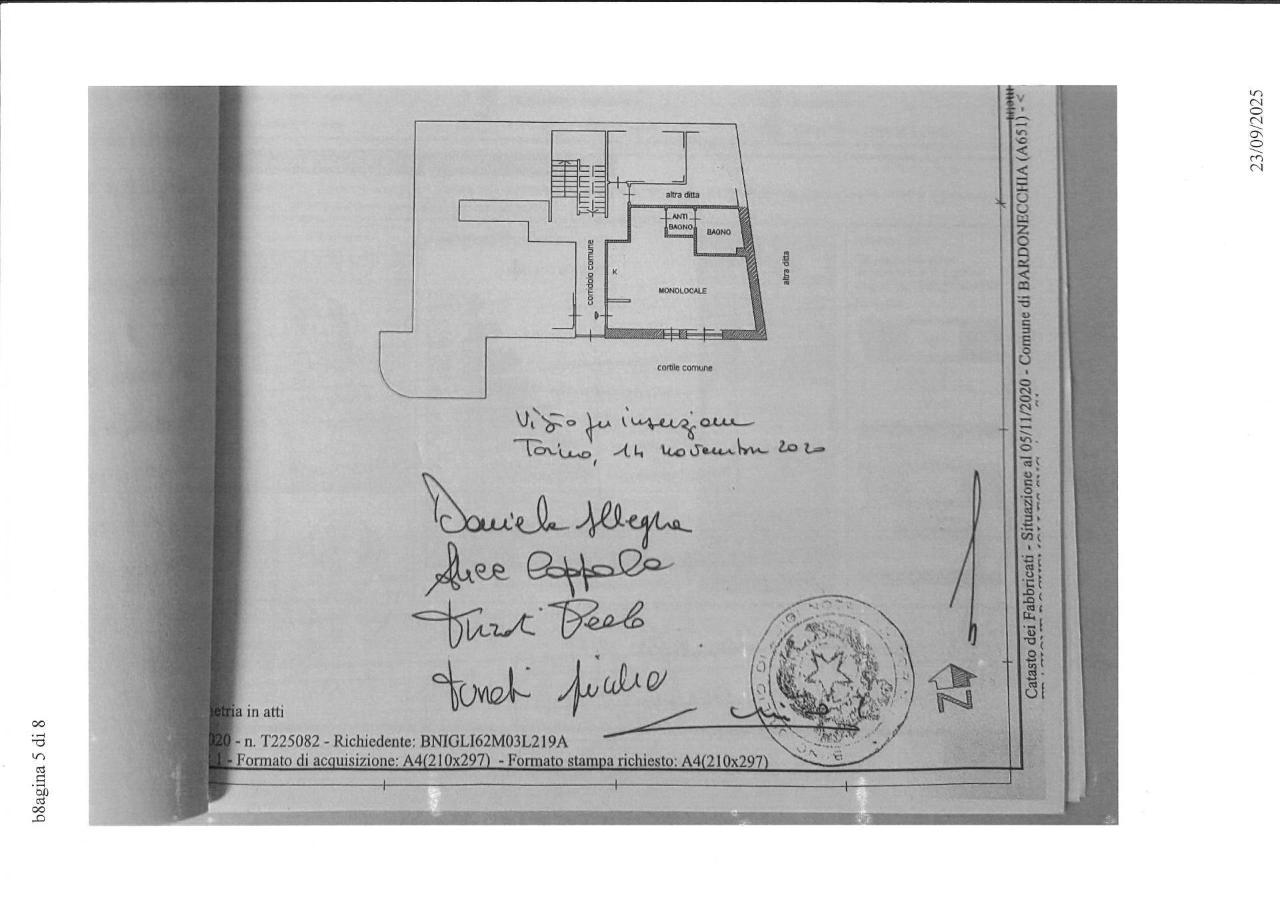 23/09/2025
altra ditta
ANTI
BAGNO
BAGNO
altra ditta
corridoio comune
K
MONOLOCALE
cortile comune
Visto per inserzione
Torino, 14 novembre 2020
Daniela Allegra
Alice Coppola
Turati Paolo
Turati
etria in atti
020 - n. T225082 - Richiedente: BNIGLI62M03L219A
1 - Formato di acquisizione: A4(210x297) - Formato stampa richiesto: A4(210x297)
Catasto dei Fabbricati - Situazione al 05/11/2020 - Comune di BARDONECCHIA (A651) - <
N
b8agina 5 di 8